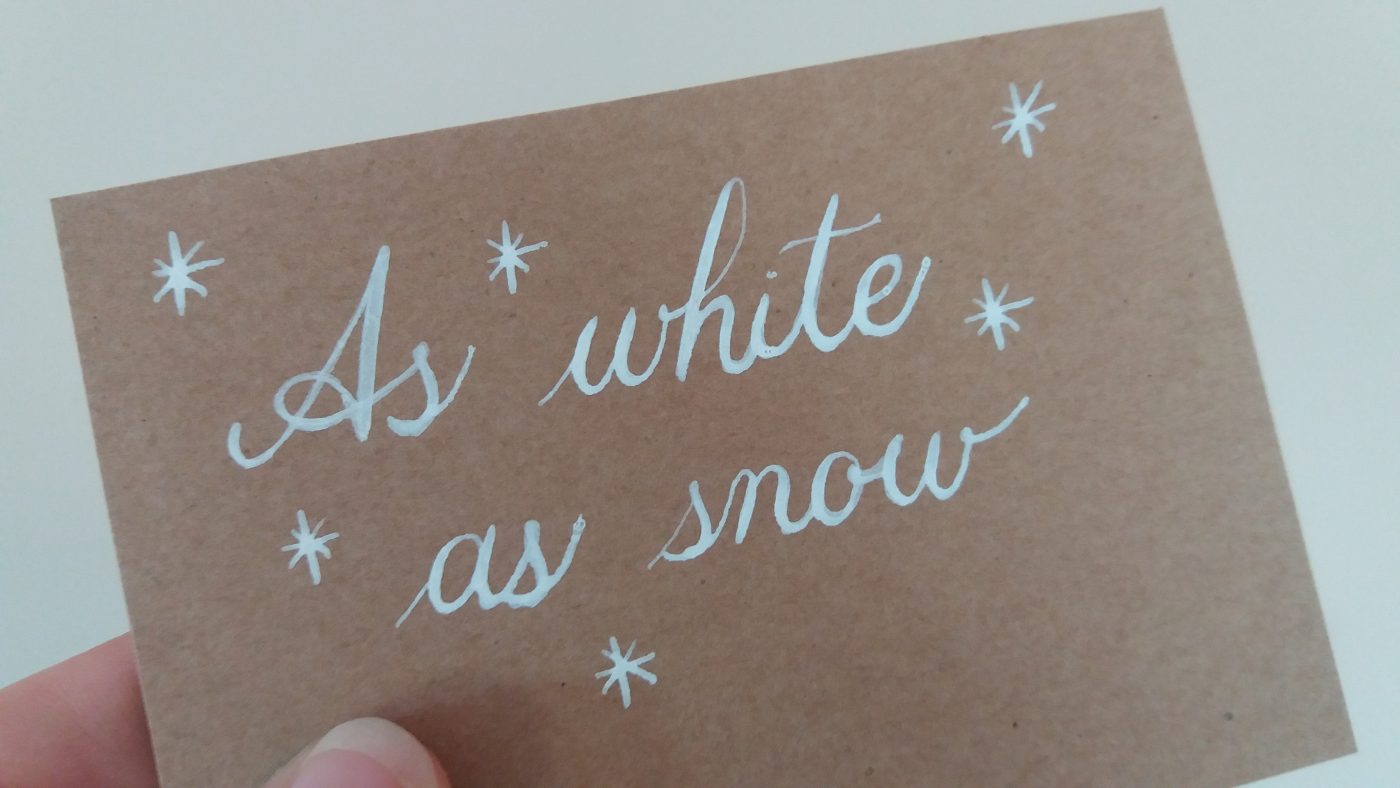 As white
as snow